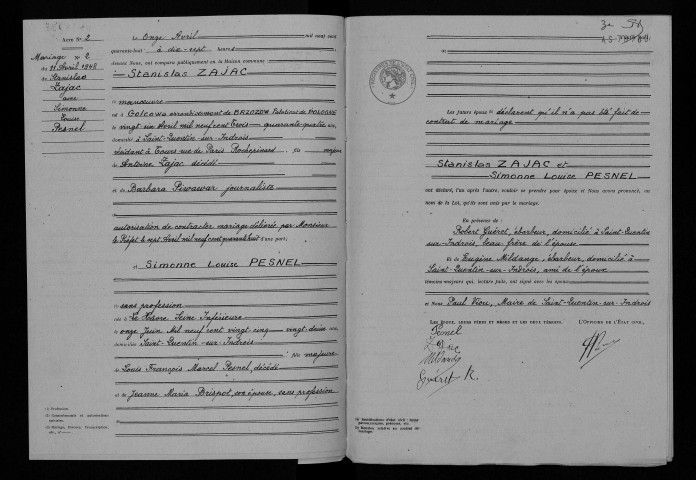 ACTE N° 2
Mariage n° 2
du 11 Avril 1948
de Stanislas
Zajac
avec
Simonne
Louise
Pesnel
Le Onze Avril mil neuf cent
quarante-huit à dix-sept heures
devant Nous, ont comparu publiquement en la Maison commune
Stanislas ZAJAC
manoeuvre
né à Golcowa arrondissement de BRZOZOW Palatinat de POLOGNE
le vingt un Avril mil neuf cent trois quarante-quatre ans,
domicilié à Saint-Quentin sur Indrois
résidant à Tours rue de Paris Rochepinard fils majeur
de Antoine Zajac décédé
et de Barbara Piwawar journalière
autorisation de contracter mariage délivrée par Monsieur
le Préfet le sept Avril mil neuf cent quarante huit d'une part;
et Simonne Louise PESNEL
sans profession
née à Le Havre Seine Inférieure
le onze Juin mil neuf cent vingt cinq vingt deux ans,
domiciliée Saint-Quentin sur Indrois
fille majeure
de Louis François Marcel Pesnel, décédé
et de Jeanne Maria Brispot, son épouse, sans profession
(1) Profession.
2e
Les futurs époux déclarent qu'il n'a pas été fait de
contrat de mariage
Stanislas ZAJAC et
Simonne Louise PESNEL
ont déclaré, l'un après l'autre, vouloir se prendre pour époux et Nous avons prononcé, au
nom de la Loi, qu'ils sont unis par le mariage.
En présence de:
Robert Guéret, ébarbeur, domicilié à Saint-Quentin
sur-Indrois, beau frère de l'épouse
Et de Eugène Mildange, ébarbeur, domicilié à
Saint-Quentin-sur-Indrois, ami de l'époux
témoins majeurs qui, lecture faite, ont signé avec les époux
et Nous Paul Viou, Maire de Saint-Quentin-sur-Indrois
LES ÉPOUX, LEURS PÈRES ET MÈRES ET LES DEUX TÉMOINS. L'OFFICIER DE L'ÉTAT CIVIL,
Pesnel
Guéret R.